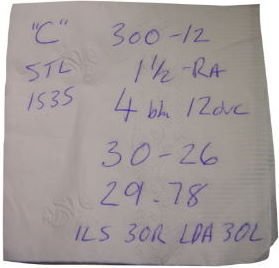 "C" 300-12
STL 1 1/2 -RA
1535 4 bkn 12 ovc
30-26
29.78
ILS 30R LDA 30L